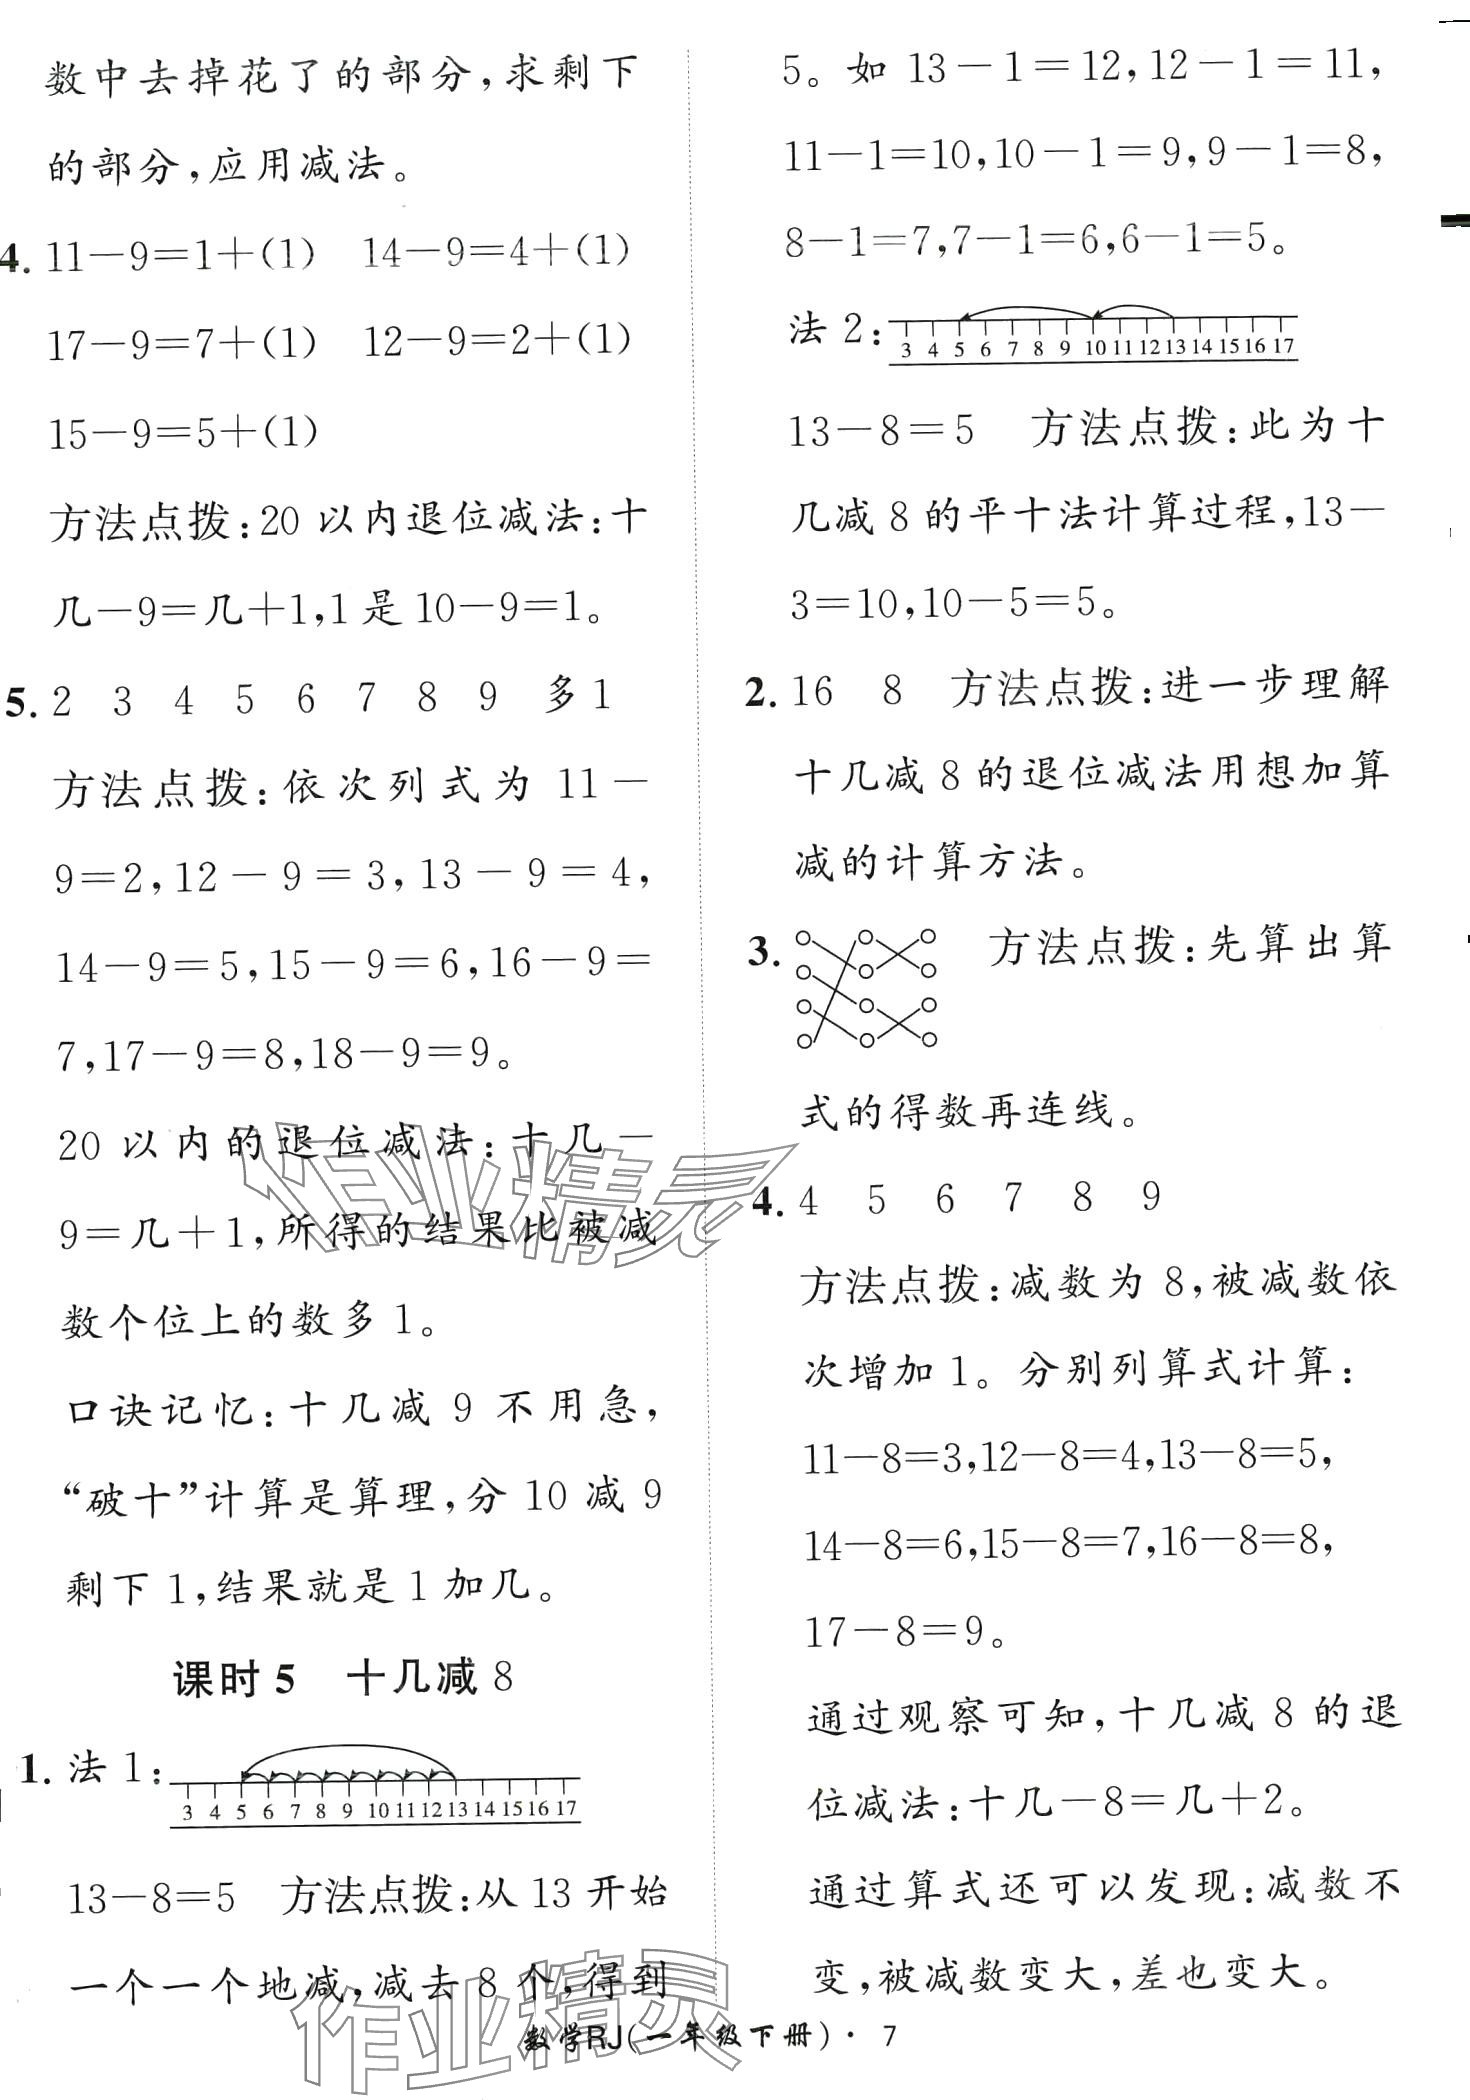 数中去掉花了的部分,求剩下
的部分,应用减法。
4. 11－9=1+(1)　14－9=4+(1)
17－9=7+(1)　12－9=2+(1)
15－9=5+(1)
方法点拨:20 以内退位减法:十
几－9=几+1,1 是 10－9=1。
5. 2　3　4　5　6　7　8　9　多 1
方法点拨:依次列式为 11－
9=2,12－9=3,13－9=4,
14－9=5,15－9=6,16－9=
7,17－9=8,18－9=9。
20 以内的退位减法:十几－
9=几+1,所得的结果比被减
数个位上的数多 1。
口诀记忆:十几减 9 不用急,
“破十”计算是算理,分 10 减 9
剩下 1,结果就是 1 加几。
课时 5　十几减 8
1. 法 1:
3 4 5 6 7 8 9 10 11 12 13 14 15 16 17
13－8=5　方法点拨:从 13 开始
一个一个地减,减去 8 个,得到
5。如 13－1=12,12－1=11,
11－1=10,10－1=9,9－1=8,
8－1=7,7－1=6,6－1=5。
法 2:
3 4 5 6 7 8 9 10 11 12 13 14 15 16 17
13－8=5　方法点拨:此为十
几减 8 的平十法计算过程,13－
3=10,10－5=5。
2. 16　8　方法点拨:进一步理解
十几减 8 的退位减法用想加算
减的计算方法。
3. 方法点拨:先算出算
式的得数再连线。
4. 4　5　6　7　8　9
方法点拨:减数为 8,被减数依
次增加 1。分别列算式计算:
11－8=3,12－8=4,13－8=5,
14－8=6,15－8=7,16－8=8,
17－8=9。
通过观察可知,十几减 8 的退
位减法:十几－8=几+2。
通过算式还可以发现:减数不
变,被减数变大,差也变大。
作业精灵
作业精灵
数学RJ(一年级下册)· 7